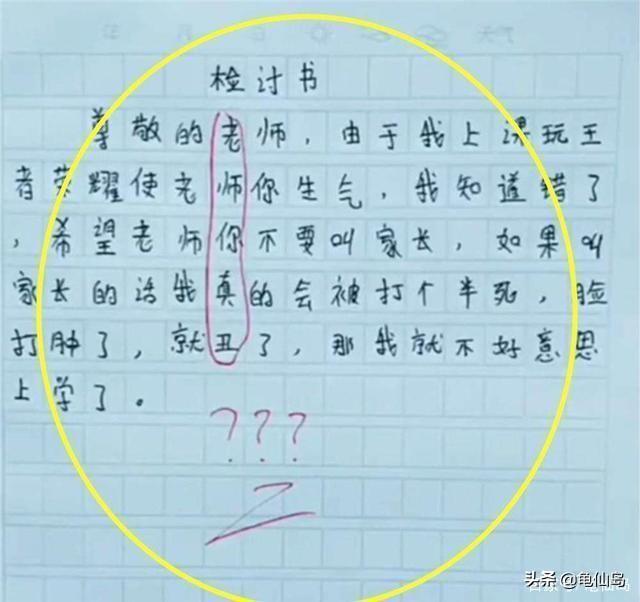 检讨书
尊敬的老师，由于我上课玩王
者荣耀使老师你生气，我知道错了
，希望老师你不要叫家长，如果叫
家长的话我真的会被打个半死，脸
打肿了，就丑了，那我就不好意思
上学了。
???
头条@龟仙岛